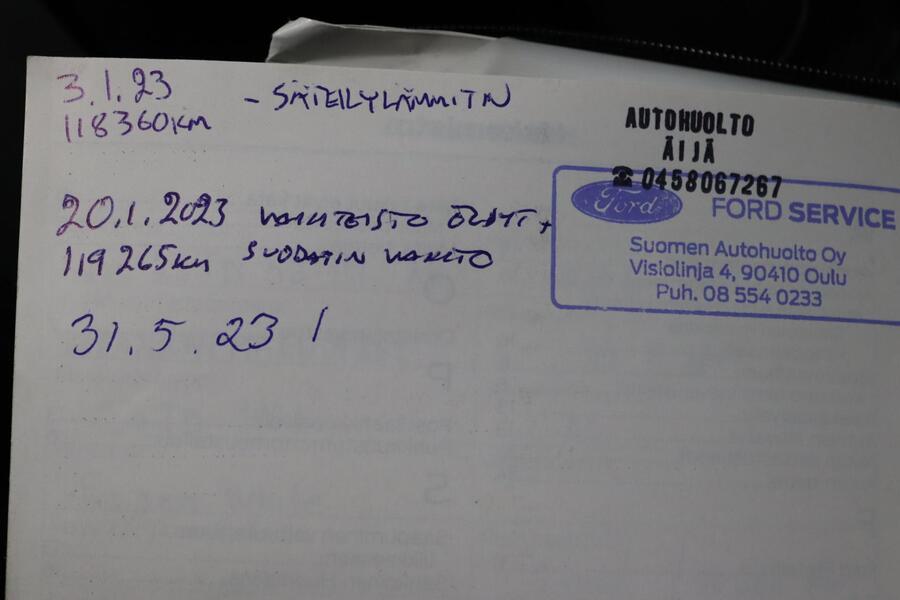 3.1.23 - SÄTEILYLÄMMITIN
118360KM
AUTOHUOLTO
ÄIJÄ
☎ 0458067267
20.1.2023 VAIHTEISTO ÖLJYT +
119265KM SUODATIN VAIHTO
Ford FORD SERVICE
Suomen Autohuolto Oy
Visiolinja 4, 90410 Oulu
Puh. 08 554 0233
31.5.23 /